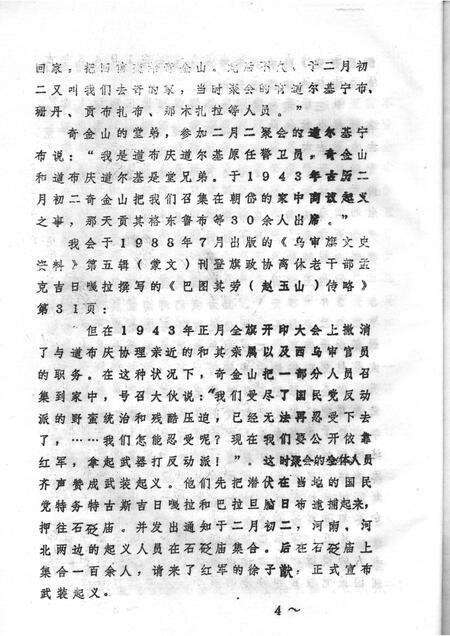 回家，把 奇金山。 于二月初
二又叫我们去奇的家，当时聚会的有道尔基宁布、
珊丹、贡布扎布、那木扎拉等人员。”
奇金山的堂弟，参加二月二聚会的道尔基宁
布说：“我是道布庆道尔基原任警卫员。奇金山
和道布庆道尔基是堂兄弟。于1943年古历二
月初二奇金山把我们召集在朝岱的家中商议起义
之事，那天贡其格东鲁布等30余人出席。”
我会于1988年7月出版的《乌审旗文史
资料》第五辑（蒙文）刊登旗政协离休老干部孟
克吉日嘎拉撰写的《巴图其劳（赵玉山）传略》
第31页：
但在1943年正月全旗开印大会上撤消
了与道布庆协理亲近的和其亲属以及西乌审官员
的职务。在这种状况下，奇金山把一部分人员召
集到家中，号召大伙说：“我们受尽了国民党反动
派的野蛮统治和残酷压迫，已经无法再忍受下去
了，……我们怎能忍受呢？现在我们要公开依靠
红军，拿起武器打反动派！”。这时聚会的全体人员
齐声赞成武装起义。他们先把潜伏在当地的国民
党特务特古斯吉日嘎拉和巴拉旦脑日布逮捕起来，
押往石砭庙。并发出通知于二月初二，河南、河
北两边的起义人员在石砭庙集合。后在石砭庙上
集合一百余人，请来了红军的徐子猷，正式宣布
武装起义。
4～